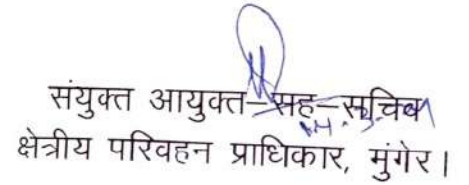 संयुक्त आयुक्त–सह–सचिव
क्षेत्रीय परिवहन प्राधिकार, मुंगेर।